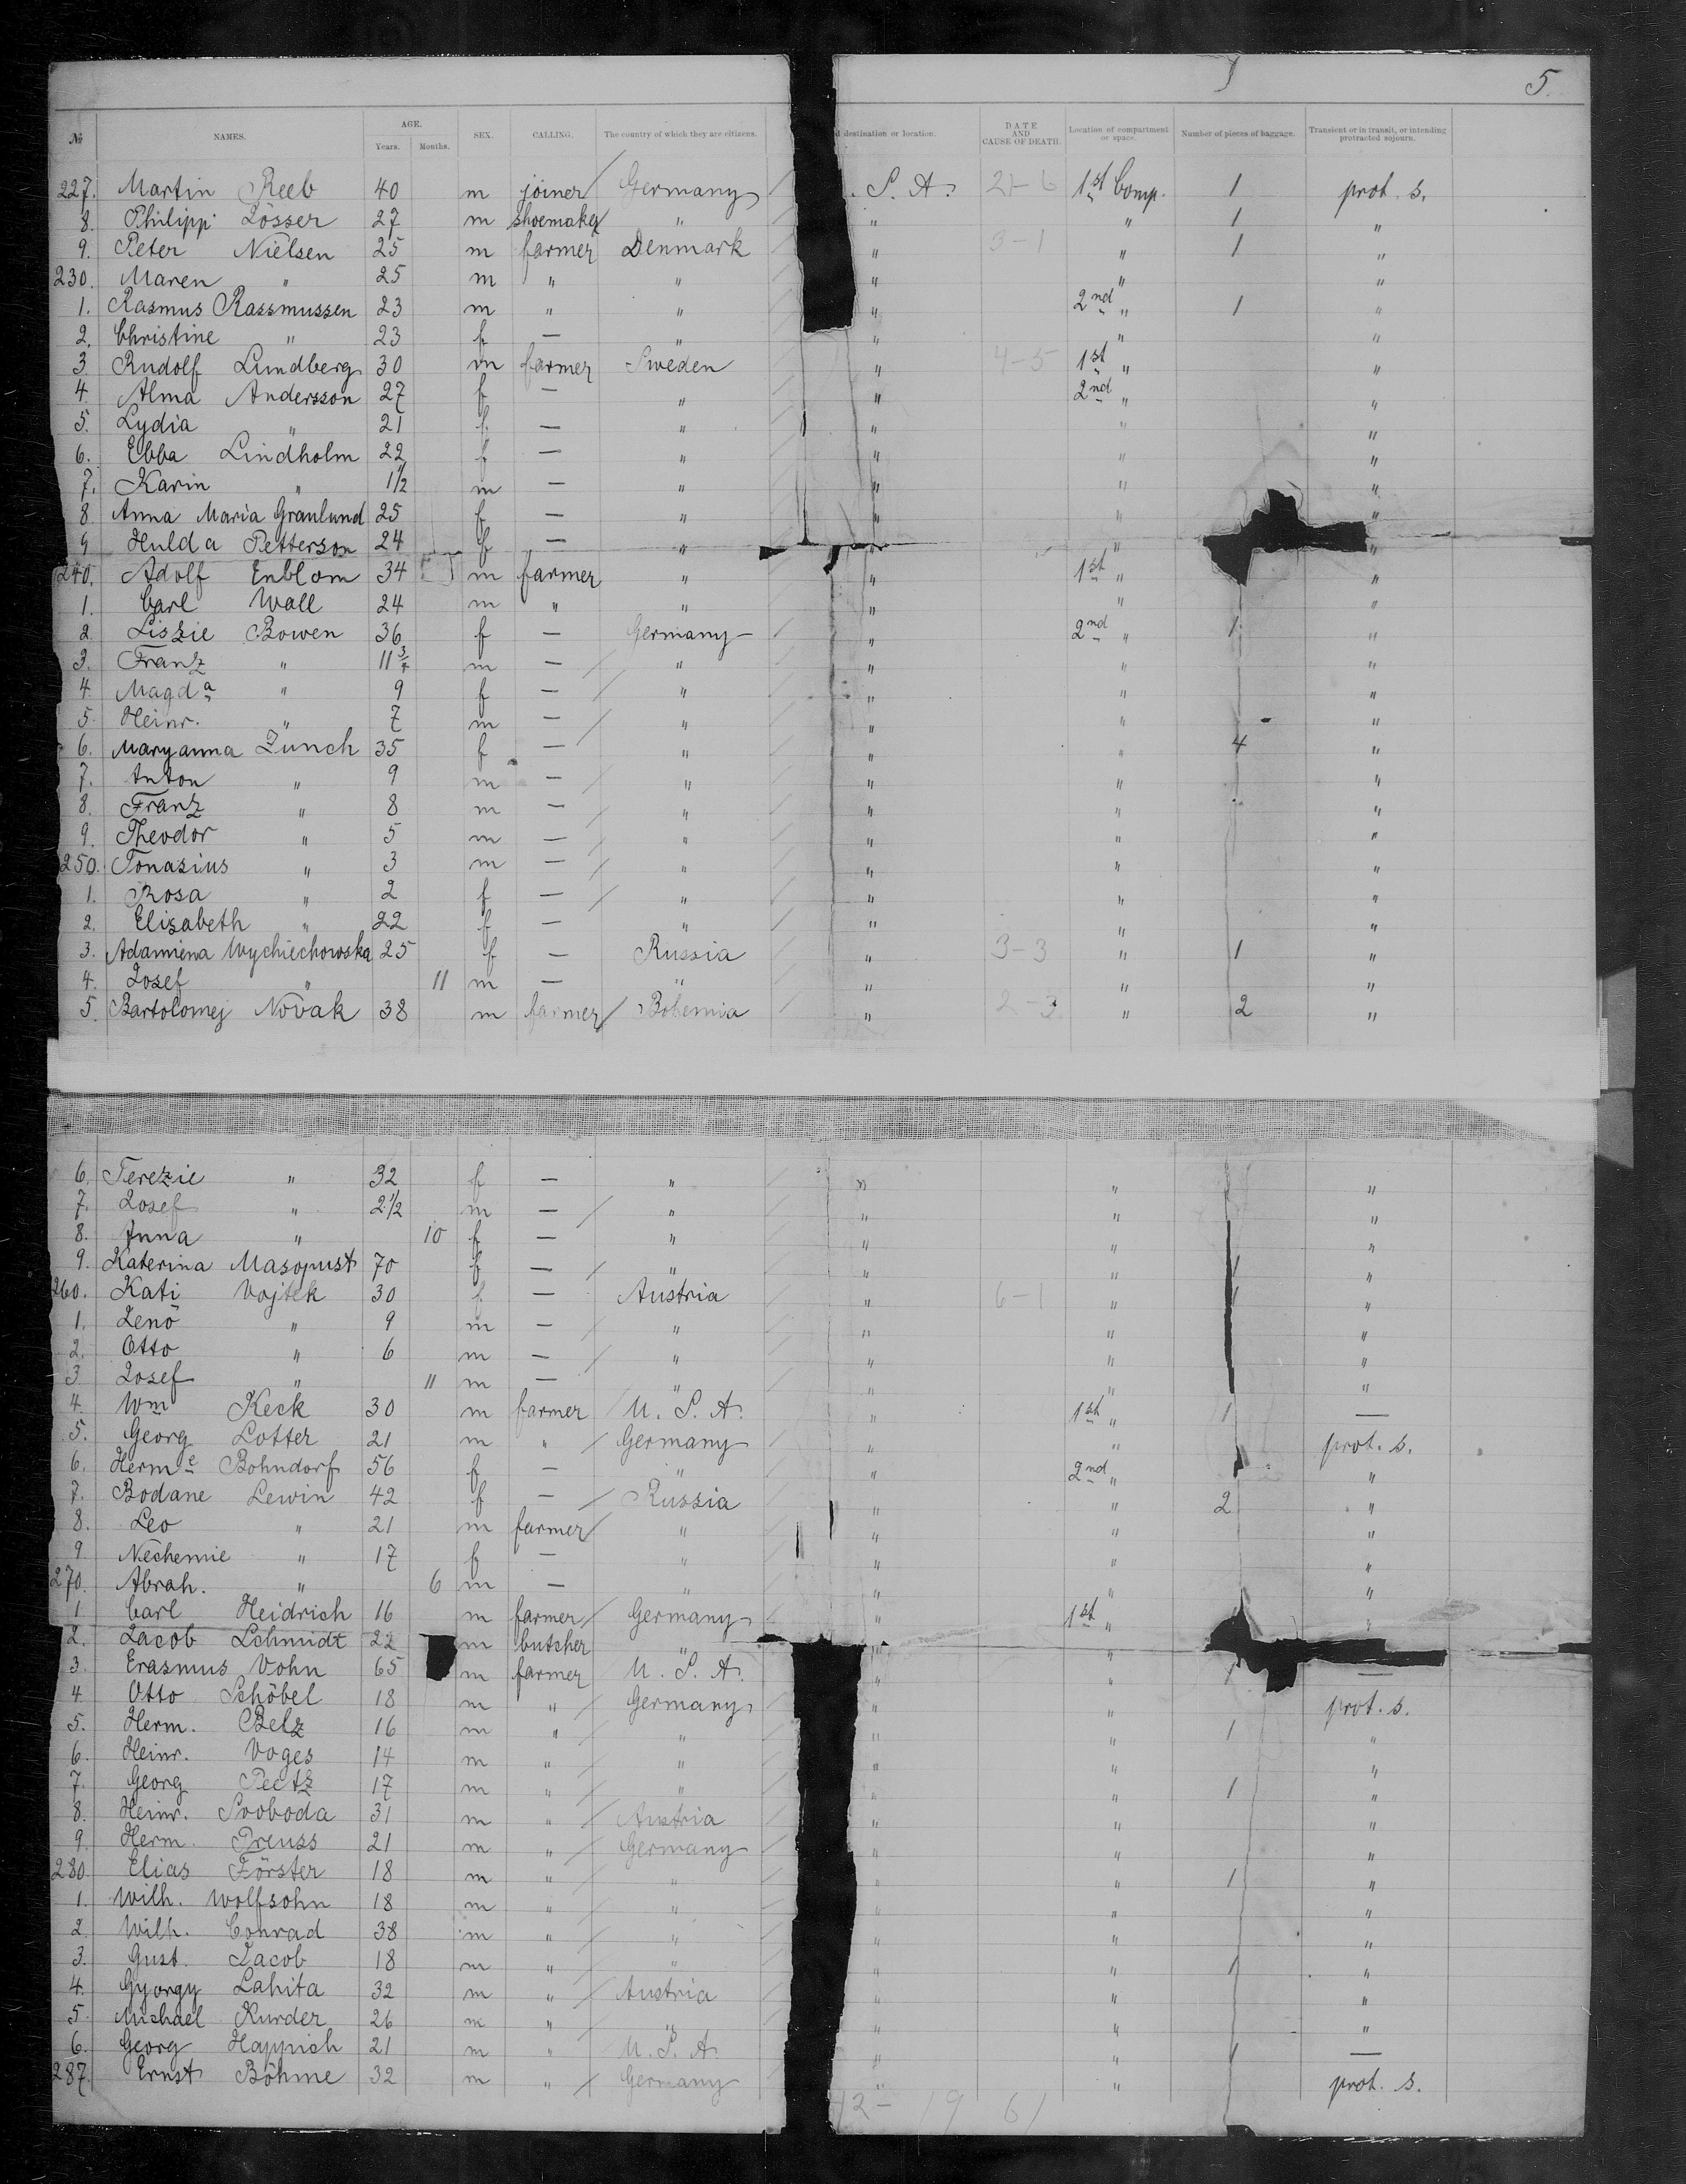 5.
№ NAMES. AGE. Years. Months. SEX. CALLING. The country of which they are citizens. d destination or location. DATE AND CAUSE OF DEATH. Location of compartment or space. Number of pieces of baggage. Transient or in transit, or intending protracted sojourn.
227. Martin Reeb 40 m joiner Germany . S. A. 1st Comp. 1 prot. s.
8. Philippi Lösser 27 m shoemaker " " " 1 "
9. Peter Nielsen 25 m farmer Denmark " 3-1 " 1 "
230. Maren " 25 m " " " " "
1. Rasmus Rassmussen 23 m " " " 2nd " 1 "
2. Christine " 23 f — " " " "
3. Rudolf Lundberg 30 m farmer Sweden " 4-5 1st " "
4. Alma Andersson 27 f — " " 2nd " "
5. Lydia " 21 f. — " " " "
6. Ebba Lindholm 22 f — " " " "
7. Karin " 1½ m — " " " "
8. Anna Maria Granlund 25 f — " " " "
9 Hulda Petterson 24 f — " " " "
240. Adolf Enblom 34 m farmer " " 1st " "
1. Carl Wall 24 m " " " " "
2. Liszie Bowen 36 f — Germany " 2nd " 1 "
3. Franz " 11¾ m — " " " "
4. Magda " 9 f — " " " "
5. Heinr. " 7 m — " " " "
6. Maryanna Zunch 35 f — " " " 4 "
7. Anton " 9 m — " " " "
8. Franz " 8 m — " " " "
9. Theodor " 5 m — " " " "
250. Tonasius " 3 m — " " " "
1. Rosa " 2 f — " " " "
2. Elizabeth " 22 f — " " " "
3. Adamiena Wychiechowska 25 f — Russia " 3-3 " 1 "
4. Josef " 11 m — " " " "
5. Bartolomej Novak 38 m farmer Bohemia " 2-3 " 2 "
6. Terezie " 32 f — " " " "
7. Josef " 2½ m — " " " "
8. Anna " 10 f — " " " "
9. Katerina Masopust 70 f — " " " 1 "
260. Kati Vojtek 30 f — Austria " 6-1 " 1 "
1. Zenö " 9 m — " " " "
2. Otto " 6 m — " " " "
3 Josef " 11 m — " " " "
4. Wm Keck 30 m farmer U. S. A. " 1st " 1 —
5. Georg Lotter 21 m " Germany " " prot. s.
6. Herme Bohndorf 56 f — " " 2nd " "
7. Bodane Lewin 42 f — Russia " " 2 "
8. Leo " 21 m farmer " " " "
9 Nechemie " 17 f — " " " "
270. Abrah. " 6 m — " " " "
1 Carl Heidrich 16 m farmer Germany " 1st " "
2. Jacob Schmidt 22 m butcher " " "
3. Erasmus Vohn 65 m farmer U. S. A. " " 1 —
4. Otto Schöbel 18 m " Germany " " prot. s.
5. Herm. Belz 16 m " " " " 1 "
6. Heinr. Voges 14 m " " " " "
7. Georg Peetz 17 m " " " " 1 "
8. Heinr. Svoboda 31 m " Austria " " "
9. Herm. Preuss 21 m " Germany " " "
280. Elias Förster 18 m " " " " 1 "
1. Wilh. Wolfsohn 18 m " " " " "
2. Wilh. Conrad 38 m " " " " "
3. Gust. Jacob 18 m " " " " 1 "
4. Gyorgy Lahita 32 m " Austria " " "
5. Michael Kurder 26 m " " " " "
6. Georg Happich 21 m " U. S. A. " " 1 —
287. Ernst Böhme 32 m " Germany " " prot. s.